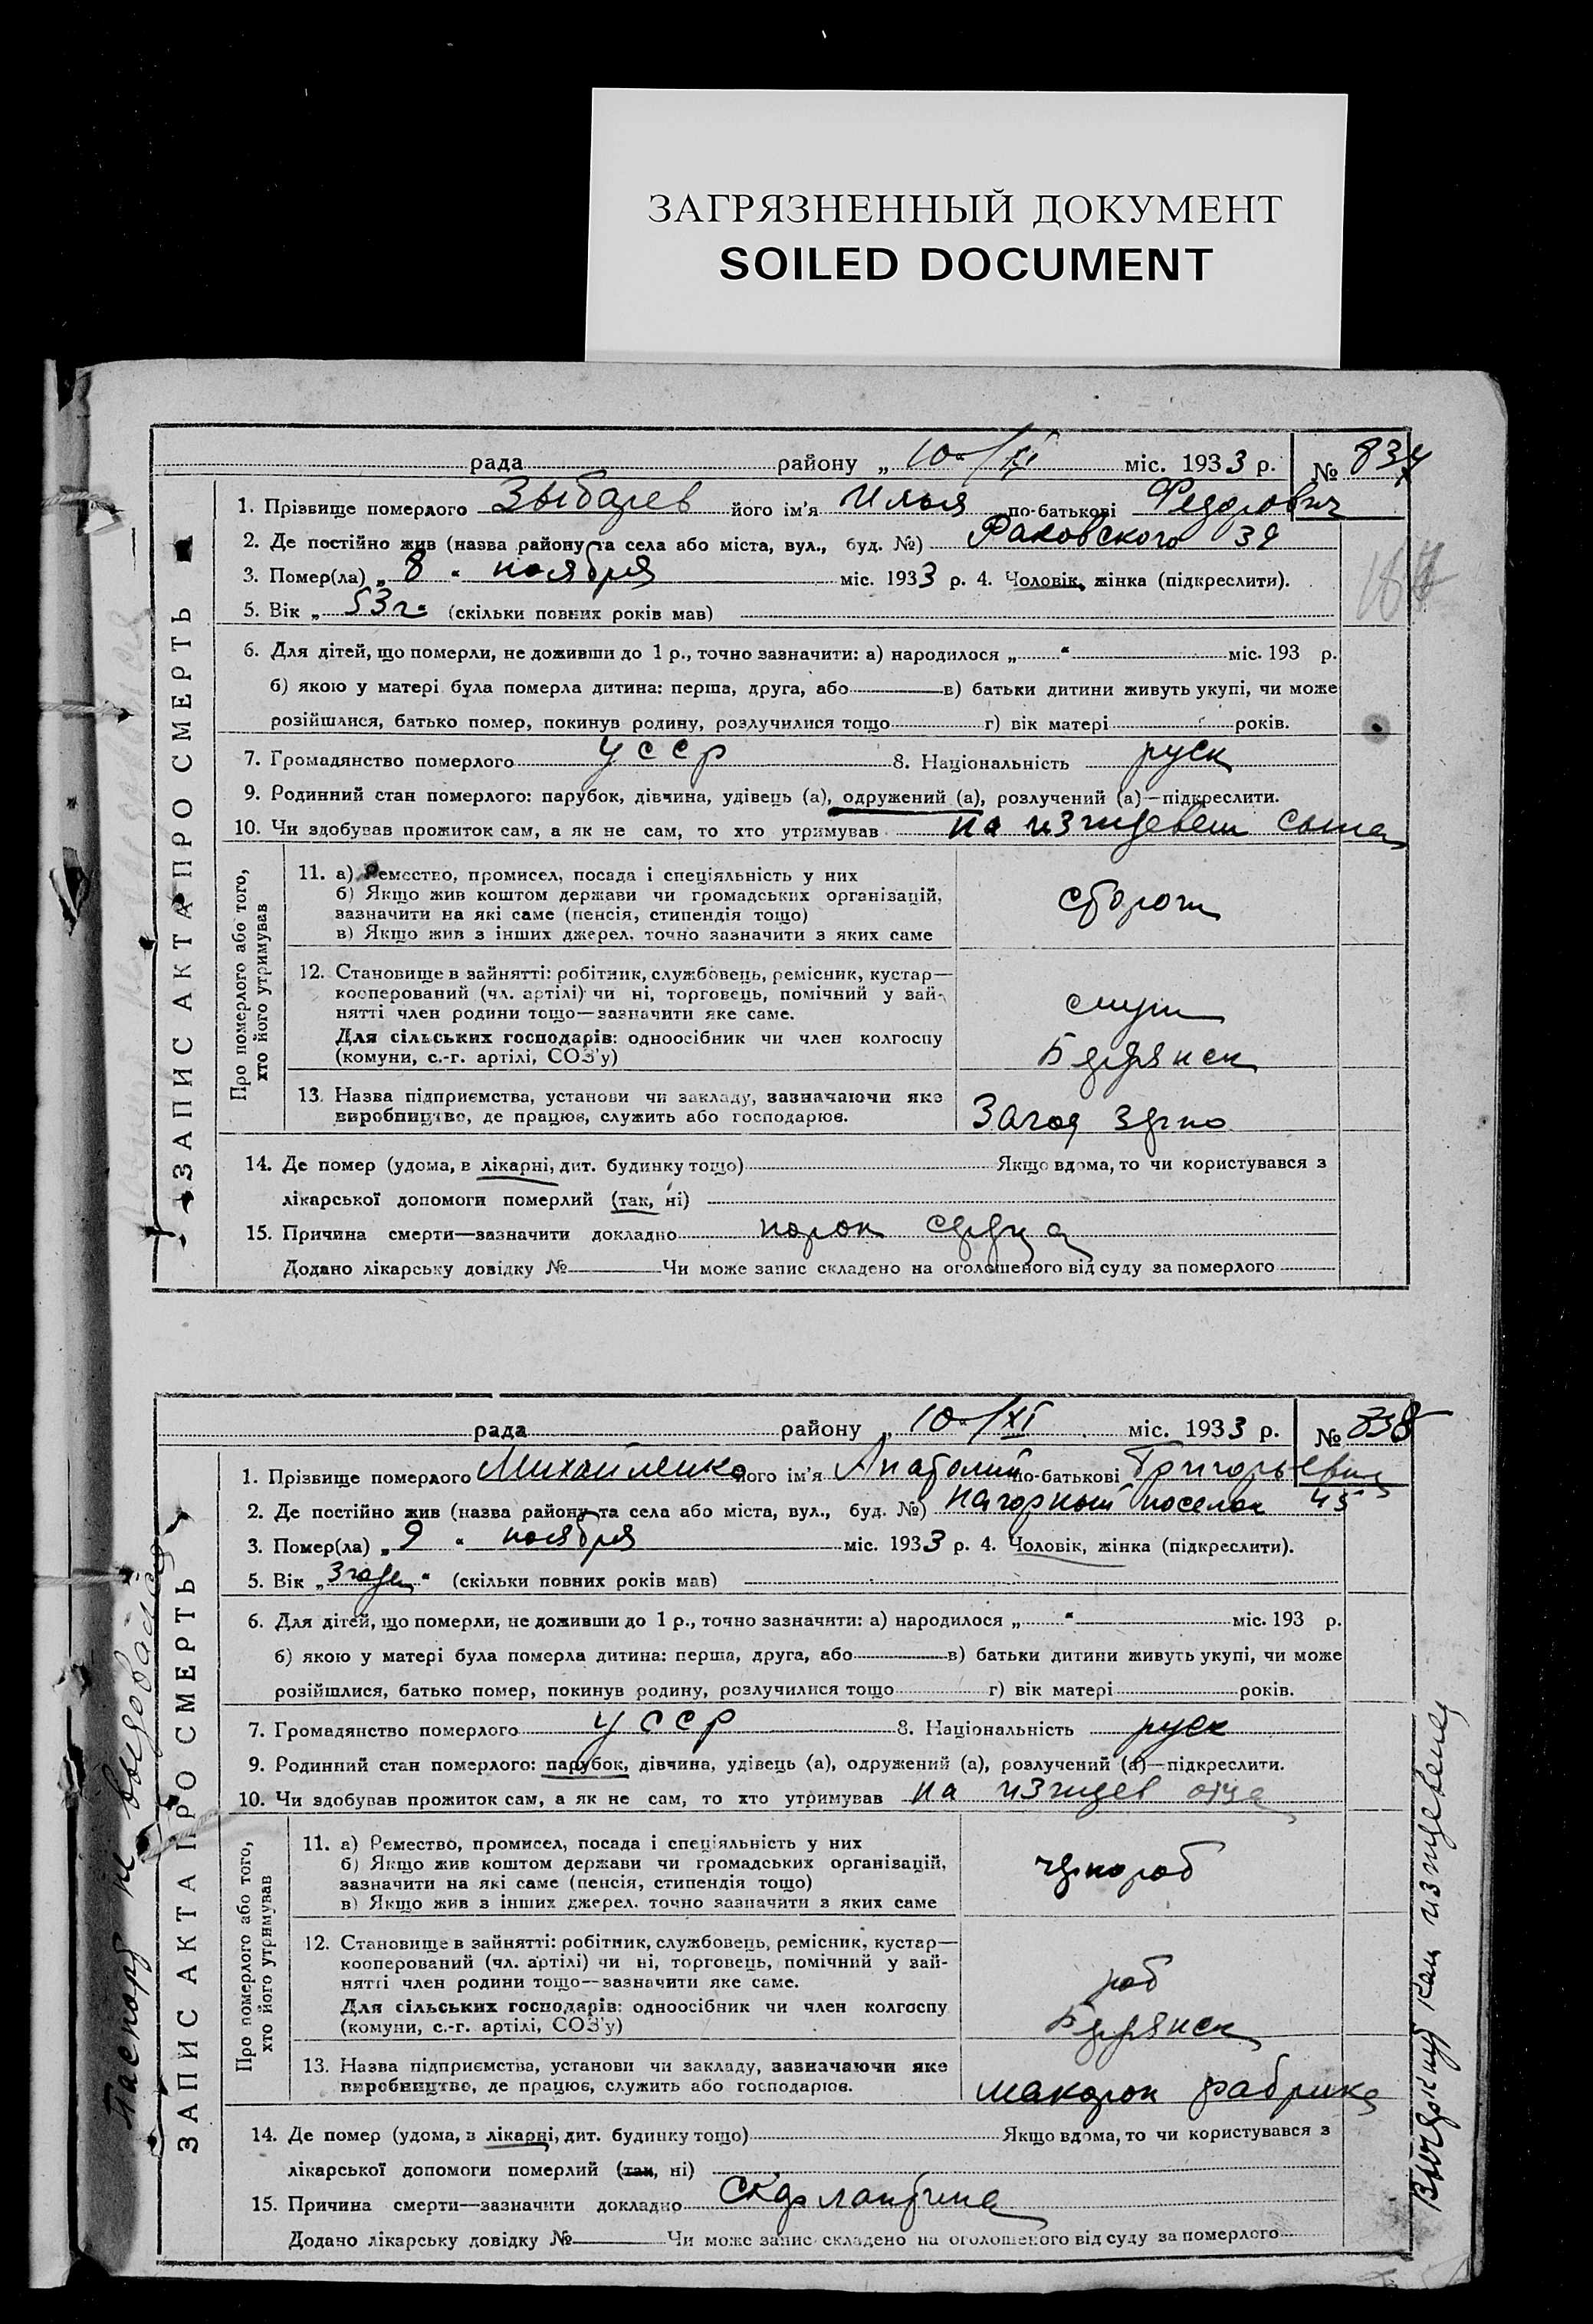 ЗАГРЯЗНЕННЫЙ ДОКУМЕНТ
SOILED DOCUMENT
рада району „10“/XI міс. 1933 р. № 837
ЗАПИС АКТА ПРО СМЕРТЬ
1. Прізвище померлого Зыбарев його ім'я Илья по-батькові Федорович
2. Де постійно жив (назва району та села або міста, вул., буд. №) Раковского 39
3. Помер(ла) „8“ ноября міс. 1933 р. 4. Чоловік, жінка (підкреслити).
5. Вік „53 г“ (скільки повних років мав)
6. Для дітей, що померли, не доживши до 1 р., точно зазначити: а) народилося „ “ міс. 193 р.
б) якою у матері була померла дитина: перша, друга, або в) батьки дитини живуть укупі, чи може
розійшлися, батько помер, покинув родину, розлучилися тощо г) вік матері років.
7. Громадянство померлого УССР 8. Національність руск
9. Родинний стан померлого: парубок, дівчина, удівець (а), одружений (а), розлучений (а)—підкреслити.
10. Чи здобував прожиток сам, а як не сам, то хто утримував на иждевен сына
Про померлого або того,
хто його утримував
11. а) Ремество, промисел, посада і спеціяльність у них
б) Якщо жив коштом держави чи громадських організацій,
зазначити на які саме (пенсія, стипендія тощо)
в) Якщо жив з інших джерел, точно зазначити з яких саме
сторож
12. Становище в зайнятті: робітник, службовець, ремісник, кустар—
кооперований (чл. артілі) чи ні, торговець, помічний у зай-
нятті член родини тощо—зазначити яке саме.
Для сільських господарів: одноосібник чи член колгоспу
(комуни, с.-г. артілі, СОЗ'у)
служ
Бердянск
13. Назва підприємства, установи чи закладу, зазначаючи яке
виробництво, де працює, служить або господарює.
Загот зерно
14. Де помер (удома, в лікарні, дит. будинку тощо) Якщо вдома, то чи користувався з
лікарської допомоги померлий (так, ні)
15. Причина смерти—зазначити докладно порок сердца
Додано лікарську довідку № Чи може запис складено на оголошеного від суду за померлого
рада району „10“/XI міс. 1933 р. № 838
ЗАПИС АКТА ПРО СМЕРТЬ
1. Прізвище померлого Михайленко його ім'я Анатолий по-батькові Григорьевич
2. Де постійно жив (назва району та села або міста, вул., буд. №) нагорный поселок 45
3. Помер(ла) „9“ ноября міс. 1933 р. 4. Чоловік, жінка (підкреслити).
5. Вік „3 года“ (скільки повних років мав)
6. Для дітей, що померли, не доживши до 1 р., точно зазначити: а) народилося „ “ міс. 193 р.
б) якою у матері була померла дитина: перша, друга, або в) батьки дитини живуть укупі, чи може
розійшлися, батько помер, покинув родину, розлучилися тощо г) вік матері років.
7. Громадянство померлого УССР 8. Національність руск
9. Родинний стан померлого: парубок, дівчина, удівець (а), одружений (а), розлучений (а)—підкреслити.
10. Чи здобував прожиток сам, а як не сам, то хто утримував на иждев отца
Про померлого або того,
хто його утримував
11. а) Ремество, промисел, посада і спеціяльність у них
б) Якщо жив коштом держави чи громадських організацій,
зазначити на які саме (пенсія, стипендія тощо)
в) Якщо жив з інших джерел, точно зазначити з яких саме
чернораб
12. Становище в зайнятті: робітник, службовець, ремісник, кустар—
кооперований (чл. артілі) чи ні, торговець, помічний у зай-
нятті член родини тощо—зазначити яке саме.
Для сільських господарів: одноосібник чи член колгоспу
(комуни, с.-г. артілі, СОЗ'у)
раб
Бердянск
13. Назва підприємства, установи чи закладу, зазначаючи яке
виробництво, де працює, служить або господарює.
макарон фабрика
14. Де помер (удома, в лікарні, дит. будинку тощо) Якщо вдома, то чи користувався з
лікарської допомоги померлий (так, ні)
15. Причина смерти—зазначити докладно скарлантина
Додано лікарську довідку № Чи може запис складено на оголошеного від суду за померлого
Паспорт не выдавался
Вычеркнут как иждевенец